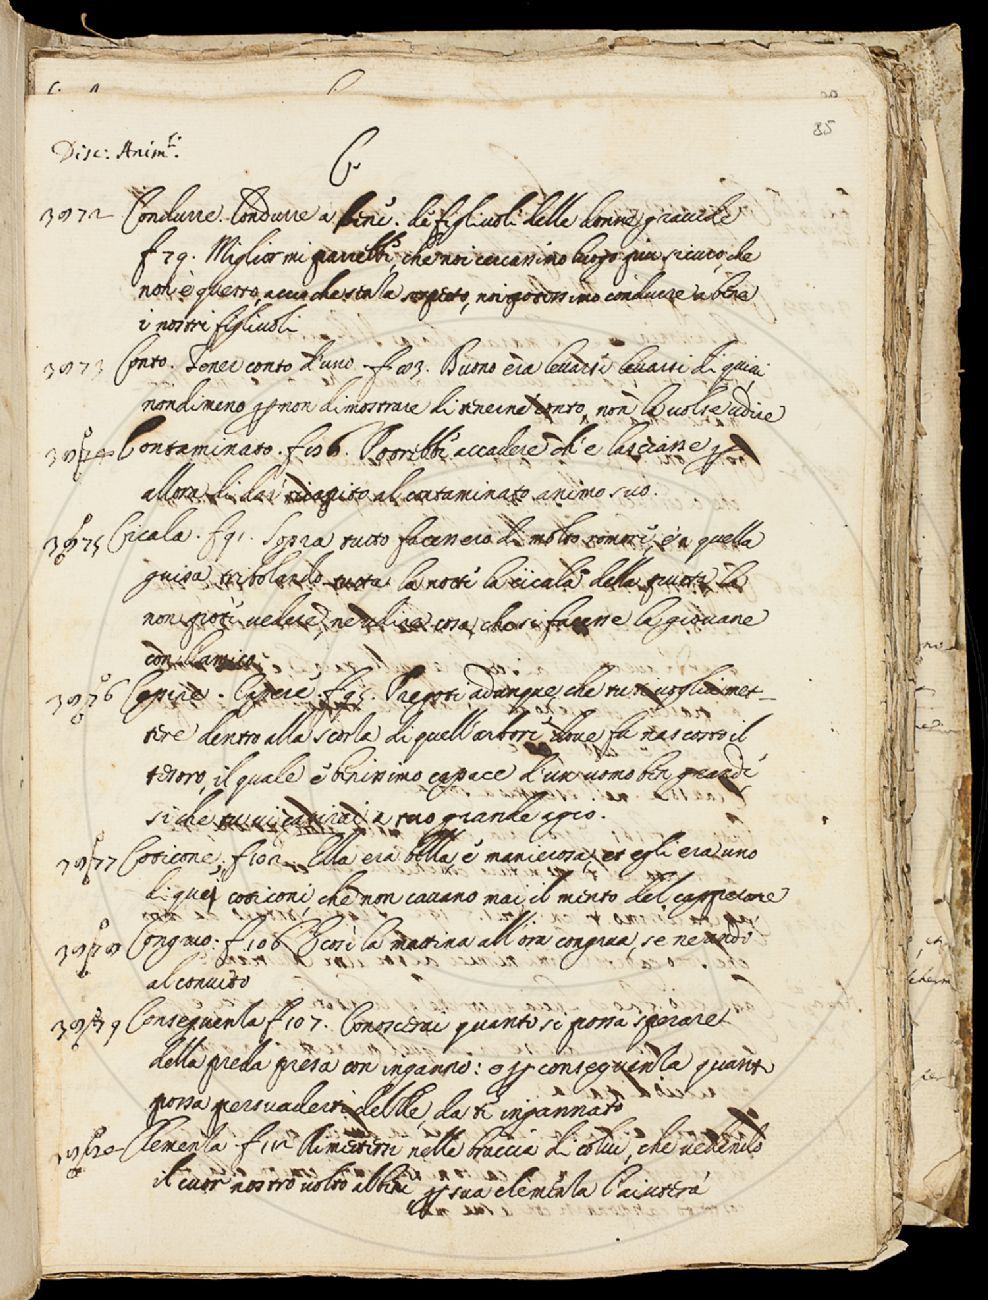 85
Disc: Anim.li
C
3072 Condurre. Condurre a bene. de figliuoli delle donne gravide
f 79. Miglior mi parrebbe, che noi cercassimo luogo piu sicuro, che
non è questo, accioche senza sospetto, noi potessimo condurre a bene
i nostri figliuoli
3073 Conto. Tener conto d'uno. f 83. Buono era levarsi levarsi di quivi
nondimeno p non dimostrare di tenerne conto, non la volse udire
3074 Contaminato. f 86. Potrebbe accadere ch'e lasciasse p
allora di dar ricapito al contaminato animo suo.
3075 Cicala. f 91. Sopra tutto facessero di molto romore, e a quella
guisa tribolando tutta la notte la cicala della putta la
non potè vedere, ne udire cosa, che si facesse la giovane
con l'amico
3076 Capire. Capere. f 95. Pregoti adunque che tu ti voglia met-
tere dentro alla scorza di quell'arbore dove fu nascosto il
tesoro, il quale è benissimo capace d'un uomo ben grande
si che tu vi capirai a tuo grande agio.
3077 Coticone. f 102 Ella era bella e manierosa, et egli era uno
di quei coticoni, che non cavano mai il mento del cappperone
3078 Congruo. f 106 E così la mattina all'ora congrua se ne andò
al convito
3079 Conseguenza f 107. Conoscerai quanto si possa sperare
della preda presa con inganno: e p conseguenza quanto
possa persuaderti del Re, da te ingannato
Clemenza f 112 Rimettersi nelle braccia di colui, che vedendo
il cuor nostro volto al bene p sua clemenza l'aiuterà